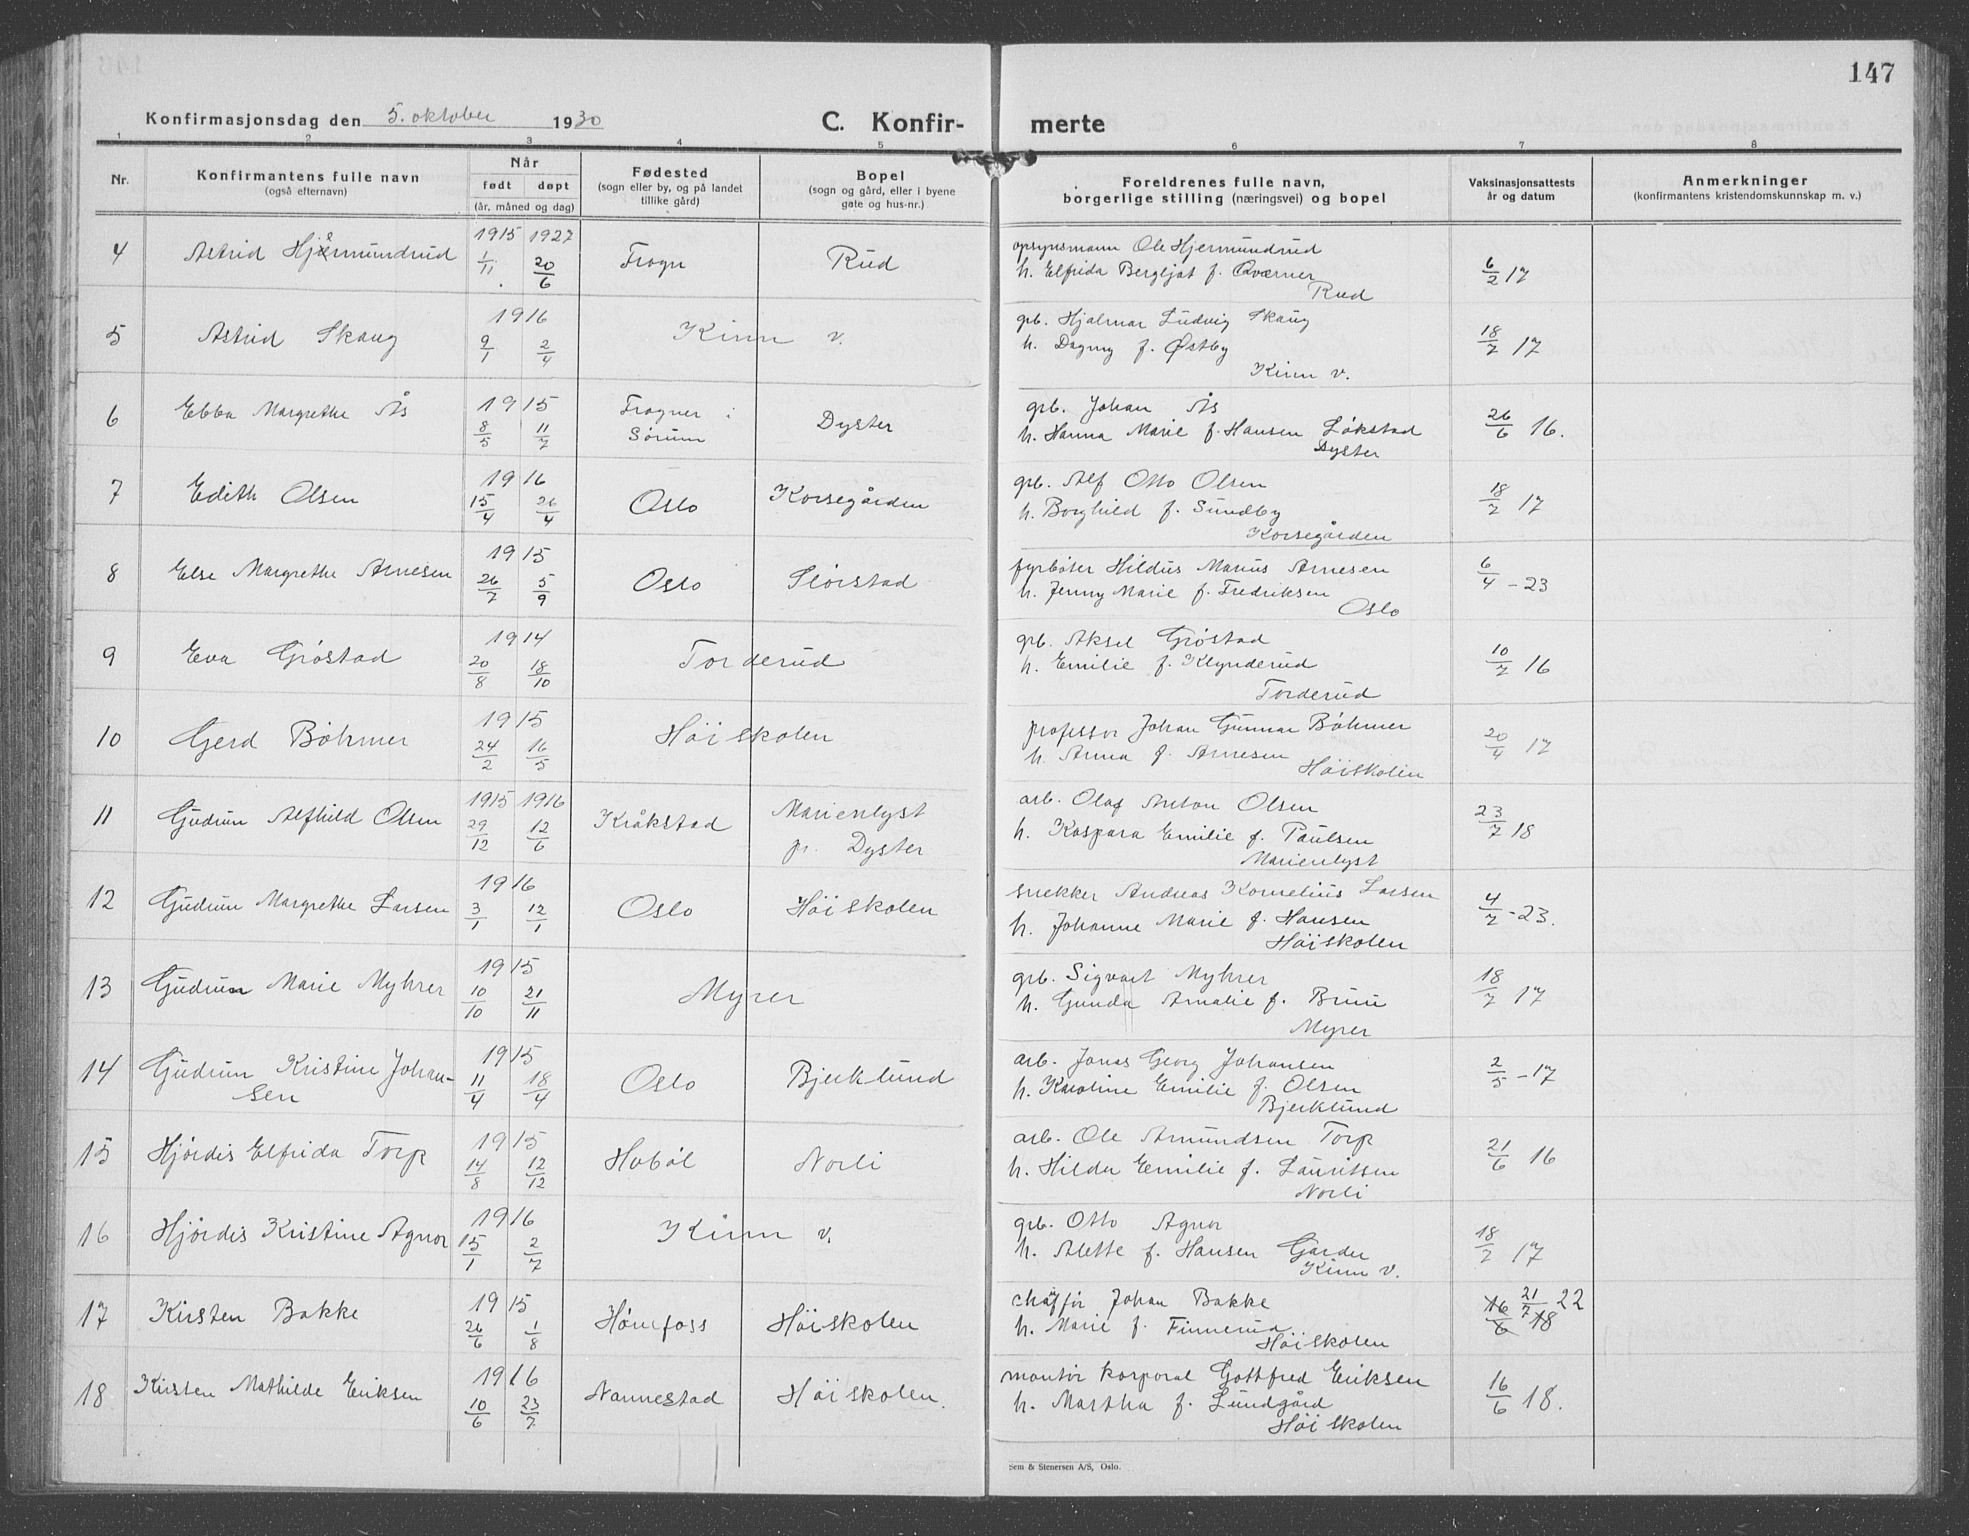 147
Konfirmasjonsdag den 5. oktober 1930 C. Konfir- merte
1 2 3 4 5 6 7 8
Nr. Konfirmantens fulle navn (også efternavn) Når født døpt (år, måned og dag) Fødested (sogn eller by, og på landet tillike gård) Bopel (sogn og gård, eller i byene gate og hus-nr.) Foreldrenes fulle navn, borgerlige stilling (næringsvei) og bopel Vaksinasjonsattests år og datum Anmerkninger (konfirmantens kristendomskunnskap m. v.)
4 Astrid Hjermundrud 1915 1/11 1927 20/6 Frogn Rud opsynsmann Ole Hjermundrud 6/2 17
h. Elfrida Bergljot f. Qværner
Rud
5 Astrid Skaug 1916 9/1 2/4 Kinn v. grb. Hjalmar Ludvig Skaug 18/7 17
h. Dagny f. Østby
Kinn v.
6 Ebba Margrethe Ås 1915 8/5 11/7 Frogner i Sørum Dyster grb. Johan Ås 26/6 16.
h. Hanna Marie f. Hansen Løkstad
Dyster
7 Edith Olsen 1916 15/4 26/4 Oslo Korsegården grb. Alf Otto Olsen 18/7 17
h. Borghild f. Sundby
Korsegården
8 Else Margrethe Arnesen 1915 26/7 5/9 Oslo Slørstad fyrbøter Hildus Marius Arnesen 6/4 - 23
h. Jenny Marie f. Fredriksen
Oslo
9 Eva Grøstad 1914 20/8 18/10 Torderud grb. Aksel Grøstad 10/7 16
h. Emilie f. Klynderud
Torderud
10 Gerd Bøhmer 1915 24/2 16/5 Høiskolen professor Johan Gunnar Bøhmer 20/4 17
h. Anna f. Arnesen
Høiskolen
11 Gudrun Alfhild Olsen 1915 29/12 1916 12/6 Kråkstad Marienlyst pr. Dyster arb. Olaf Anton Olsen 23/7 18
h. Kaspara Emilie f. Paulsen
Marienlyst
12 Gudrun Margrethe Larsen 1916 3/1 12/1 Oslo Høiskolen snekker Andreas Kornelius Larsen 4/7 - 23.
h. Johanne Marie f. Hansen
Høiskolen
13 Gudrun Marie Myhrer 1915 10/10 21/11 Myrer grb. Sigvart Myhrer 18/7 17
h. Gunda Amalie f. Bruu
Myrer
14 Gudrun Kristine Johan-
sen 1915 11/4 18/4 Oslo Bjerklund arb. Jonas Georg Johansen 2/5 - 17
h. Karoline Emilie f. Olsen
Bjerklund
15 Hjørdis Elfrida Torp 1915 14/8 12/12 Hobøl Norli arb. Ole Amundsen Torp 21/6 16
h. Hilda Emilie f. Lauritsen
Norli
16 Hjørdis Kristine Agnor 1916 15/1 2/7 Kinn v. grb. Otto Agnor 18/7 17
h. Alette f. Hansen Garder
Kinn v.
17 Kirsten Bakke 1915 26/6 1/8 Hønefoss Høiskolen chaffør Johan Bakke 16/6 18 21/7 22
h. Marie f. Finnerud
Høiskolen
18 Kirsten Mathilde Eriksen 1916 10/6 23/7 Nannestad Høiskolen. montør korporal Gottfred Eriksen 16/6 18.
h. Martha f. Lundgård
Høiskolen
Sem & Stenersen A/S, Oslo.